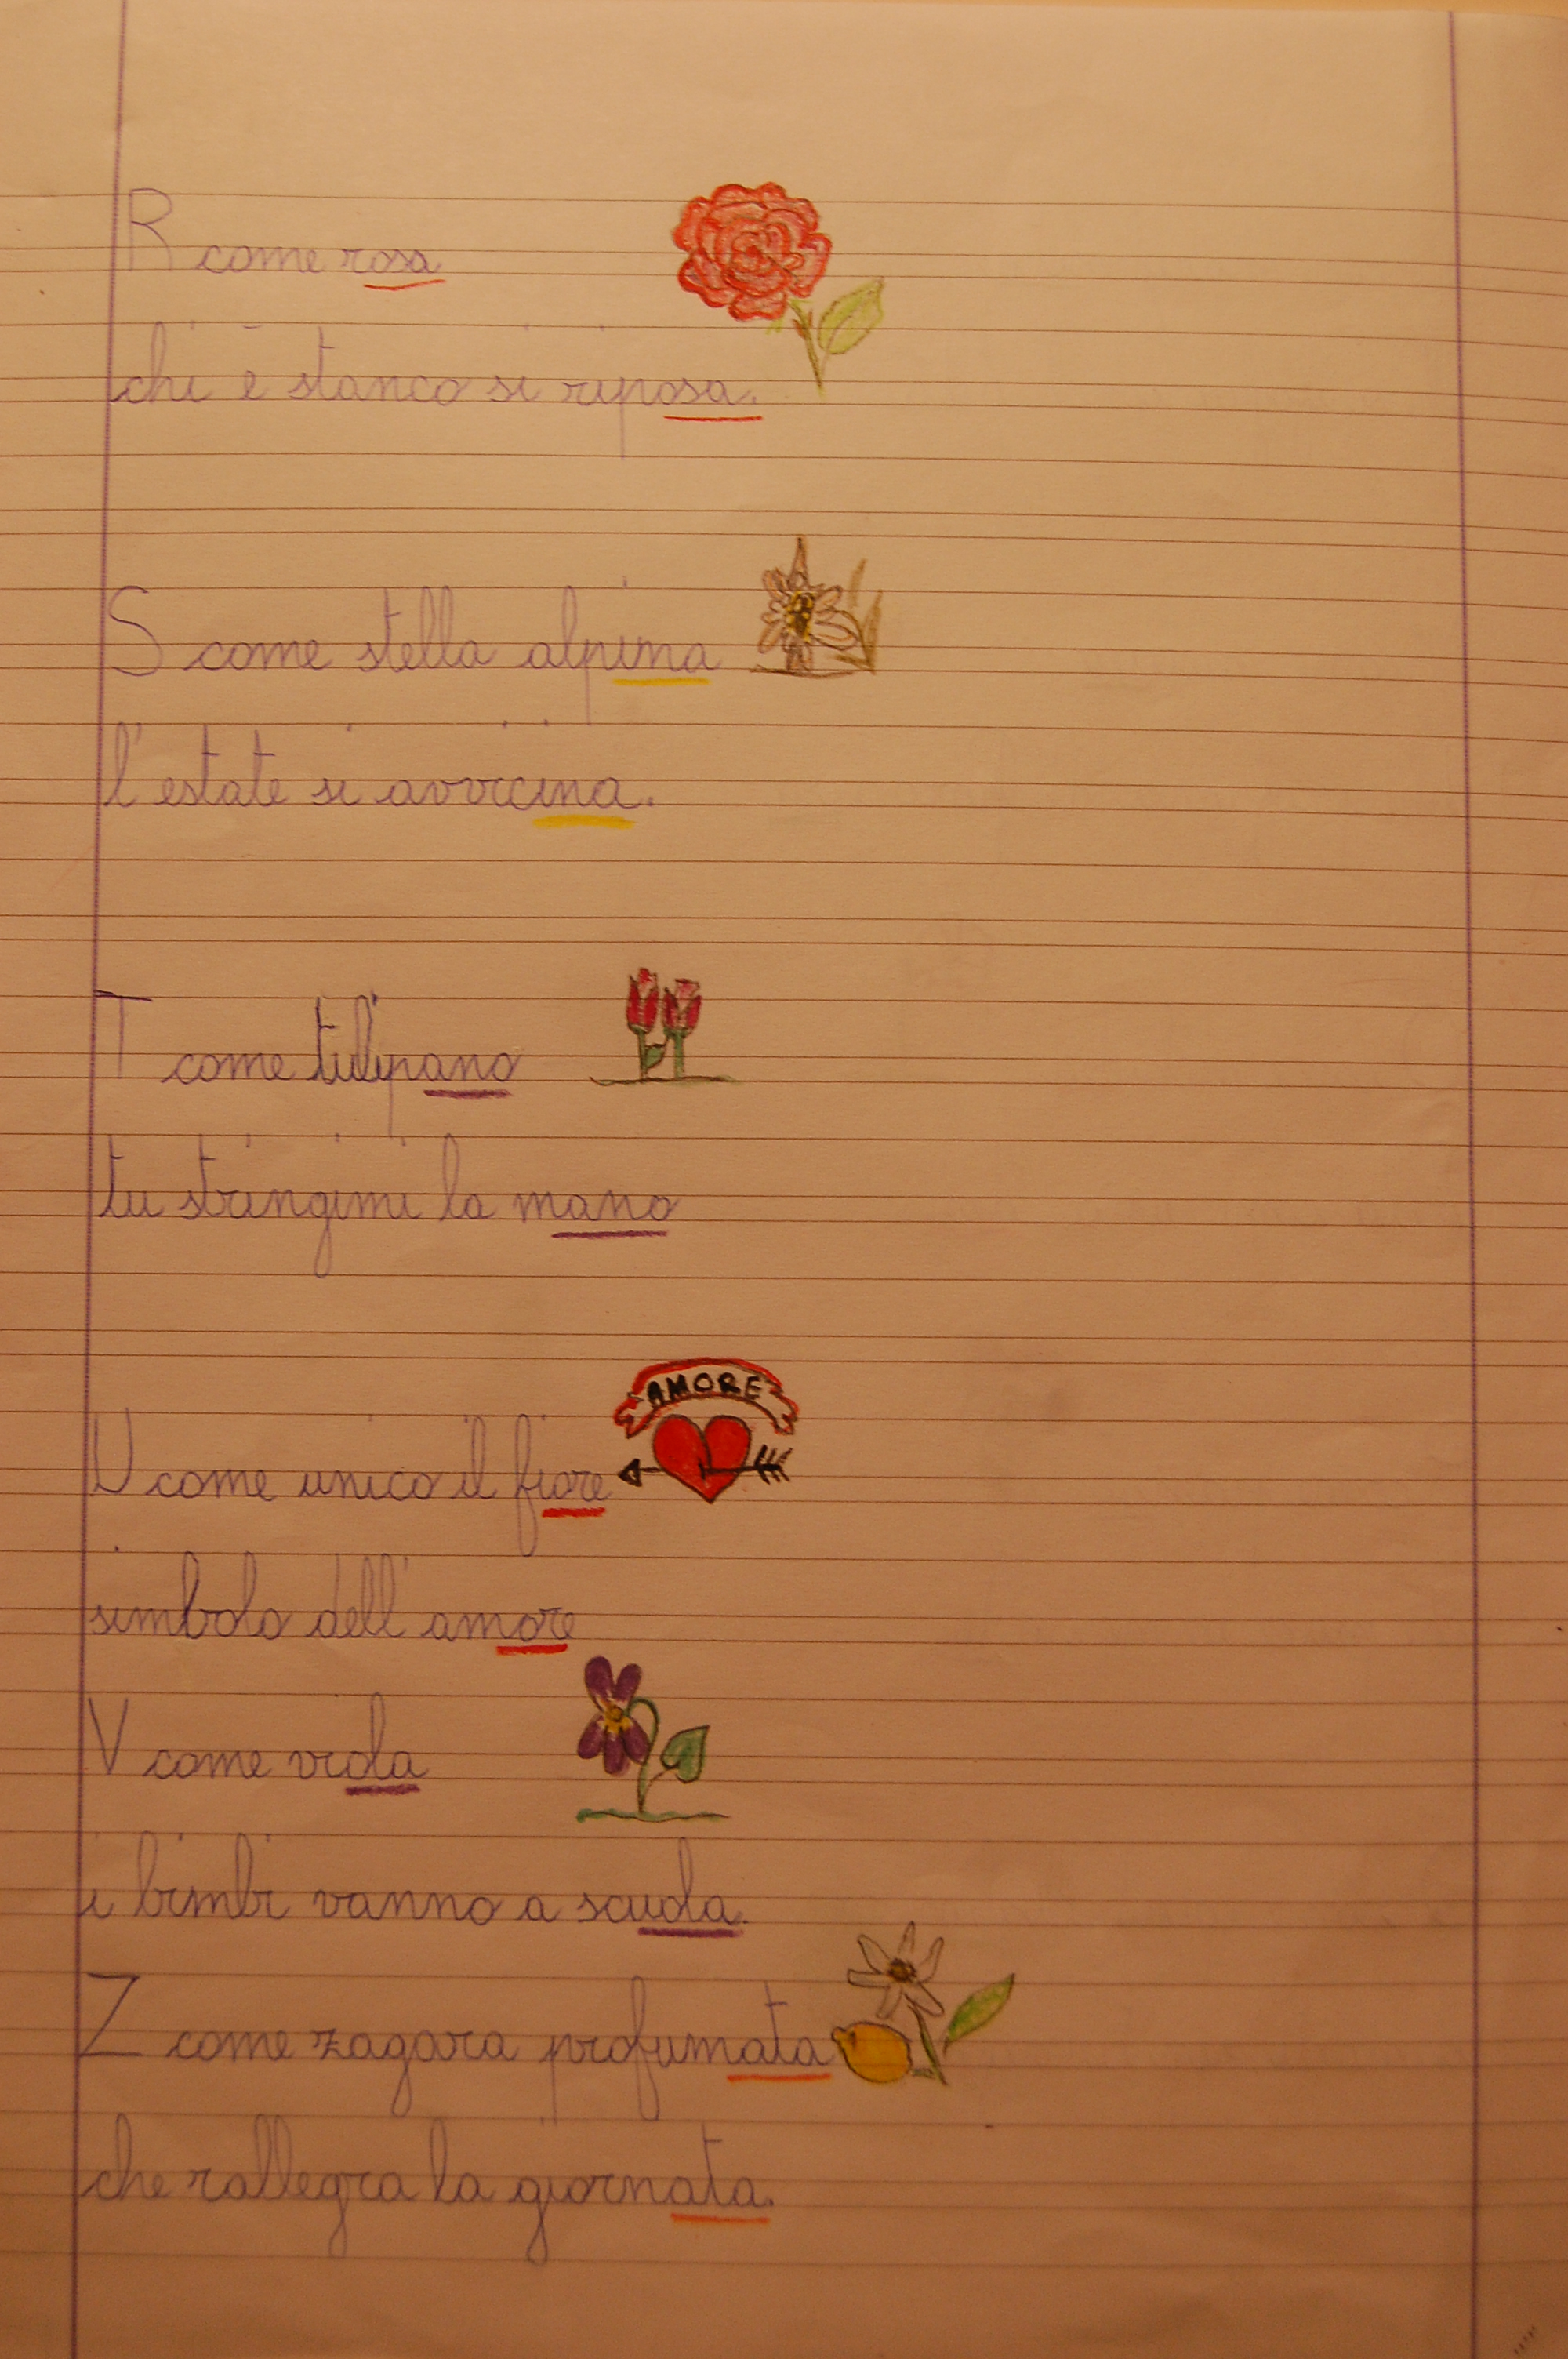 R come rosa
chi è stanco si riposa.
S come stella alpina
l'estate si avvicina.
T come tulipano
tu stringimi la mano
AMORE
U come unico il fiore
simbolo dell'amore
V come viola
i bimbi vanno a scuola.
Z come zagara profumata
che rallegra la giornata.